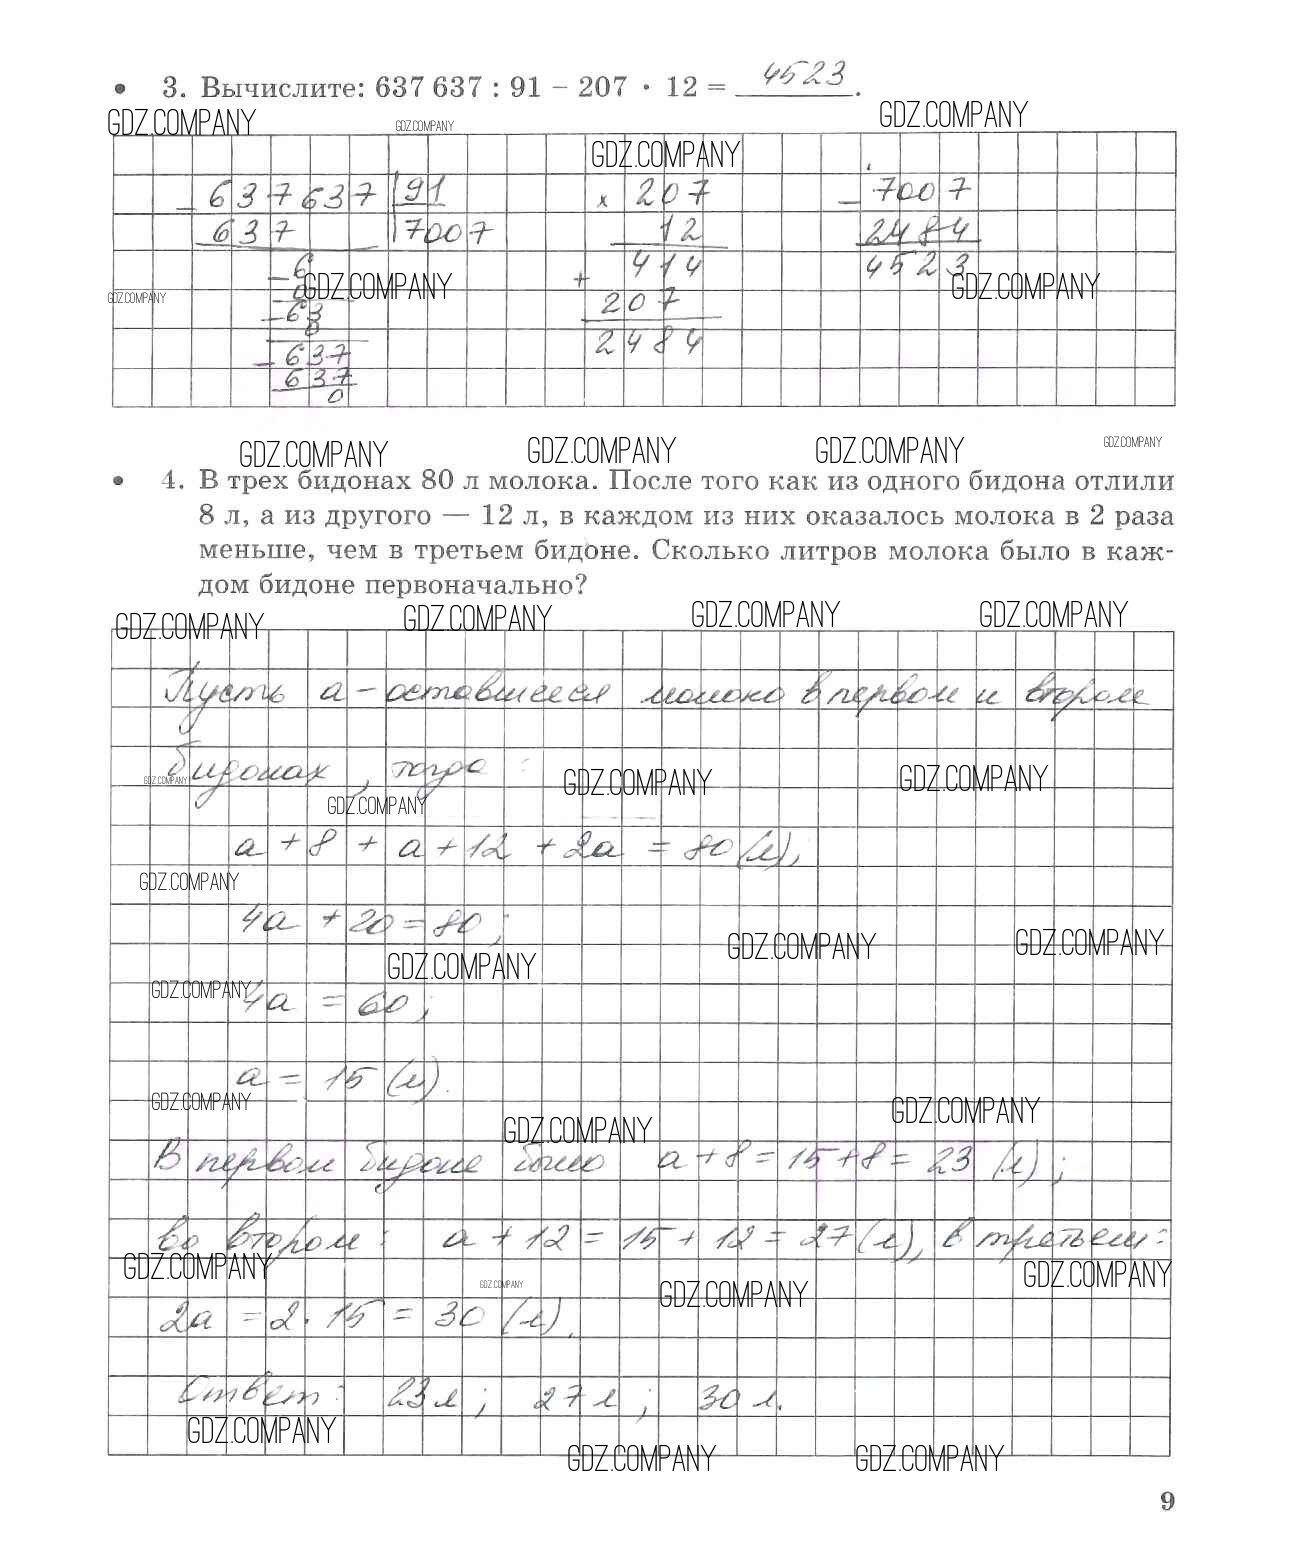 • 3. Вычислите: 637 637 : 91 – 207 · 12 = 4523.
GDZ.COMPANY GDZ.COMPANY GDZ.COMPANY
GDZ.COMPANY
– 637637 |91 × 207 – 7007
637 |7007 12 2484
– 6 + 414 4523
GDZ.COMPANY GDZ.COMPANY GDZ.COMPANY
0 207
– 63 2484
0
– 637
637
0
GDZ.COMPANY GDZ.COMPANY GDZ.COMPANY GDZ.COMPANY
• 4. В трех бидонах 80 л молока. После того как из одного бидона отлили
8 л, а из другого — 12 л, в каждом из них оказалось молока в 2 раза
меньше, чем в третьем бидоне. Сколько литров молока было в каж-
дом бидоне первоначально?
GDZ.COMPANY GDZ.COMPANY GDZ.COMPANY GDZ.COMPANY
Пусть а – оставшееся молоко в первом и втором
бидонах, тогда:
GDZ.COMPANY GDZ.COMPANY GDZ.COMPANY
GDZ.COMPANY
а + 8 + а + 12 + 2а = 80 (л);
GDZ.COMPANY
4а + 20 = 80;
GDZ.COMPANY GDZ.COMPANY
GDZ.COMPANY
GDZ.COMPANY
4а = 60;
а = 15 (л).
GDZ.COMPANY GDZ.COMPANY
GDZ.COMPANY
В первом бидоне было а + 8 = 15 + 8 = 23 (л);
во втором: а + 12 = 15 + 12 = 27 (л), в третьем:
GDZ.COMPANY GDZ.COMPANY GDZ.COMPANY GDZ.COMPANY
2а = 2 · 15 = 30 (л).
Ответ: 23 л; 27 л; 30 л.
GDZ.COMPANY
GDZ.COMPANY GDZ.COMPANY
9